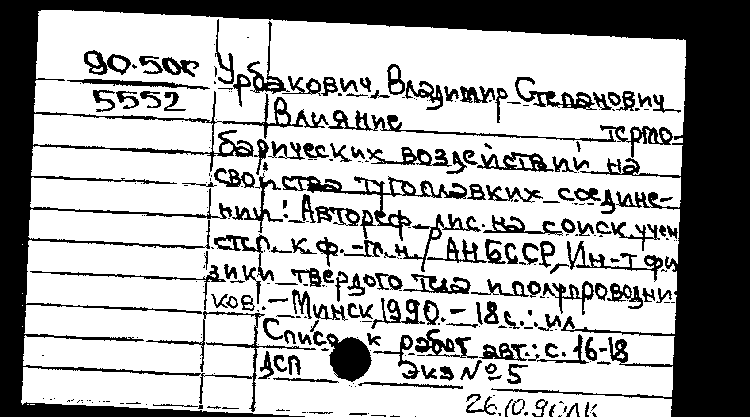 90-50к
5552
Урбакович, Владимир Степанович
Влияние термо-
барических воздействий на
свойства тугоплавких соедине-
ний : Автореф. дис. на соиск. учен
степ. к.ф.-м.н. / АН БССР, Ин-т фи
зики твердого тела и полупроводни-
ков. - Минск, 1990. - 18 с. : ил.
Список работ авт.: с. 16-18
ДСП Экз № 5
26.10.90